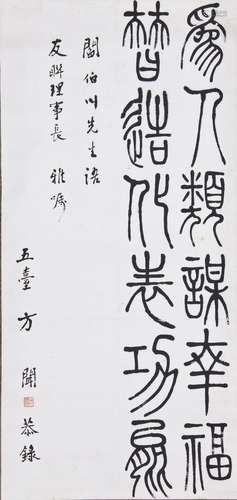 為人類謀幸福
替造化表功能
閻伯川先生語
友聯理事長 雅囑
五臺 方聞 恭錄